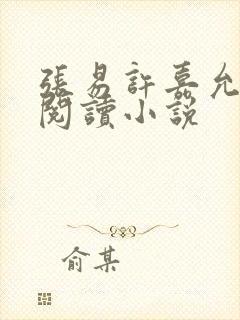 張易許嘉允
閱讀小説
俞某